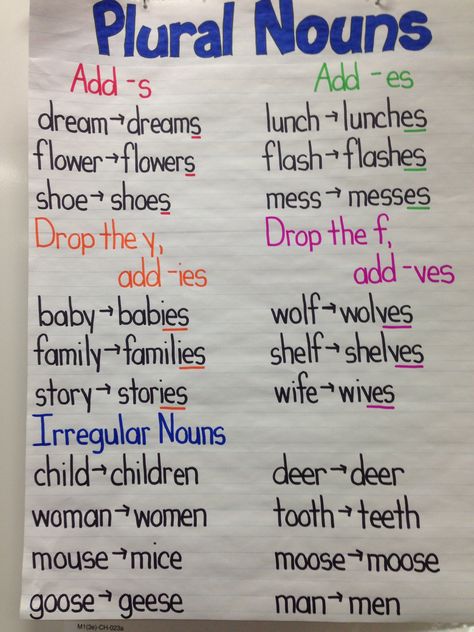 Plural Nouns
Add -s
dream→dreams
flower→flowers
shoe→shoes
Add -es
lunch→lunches
flash→flashes
mess→messes
Drop the y,
add -ies
baby→babies
family→families
story→stories
Drop the f,
add -ves
wolf→wolves
shelf→shelves
wife→wives
Irregular Nouns
child→children
woman→women
mouse→mice
goose→geese
deer→deer
tooth→teeth
moose→moose
man→men
M1(2e)-CH-023a